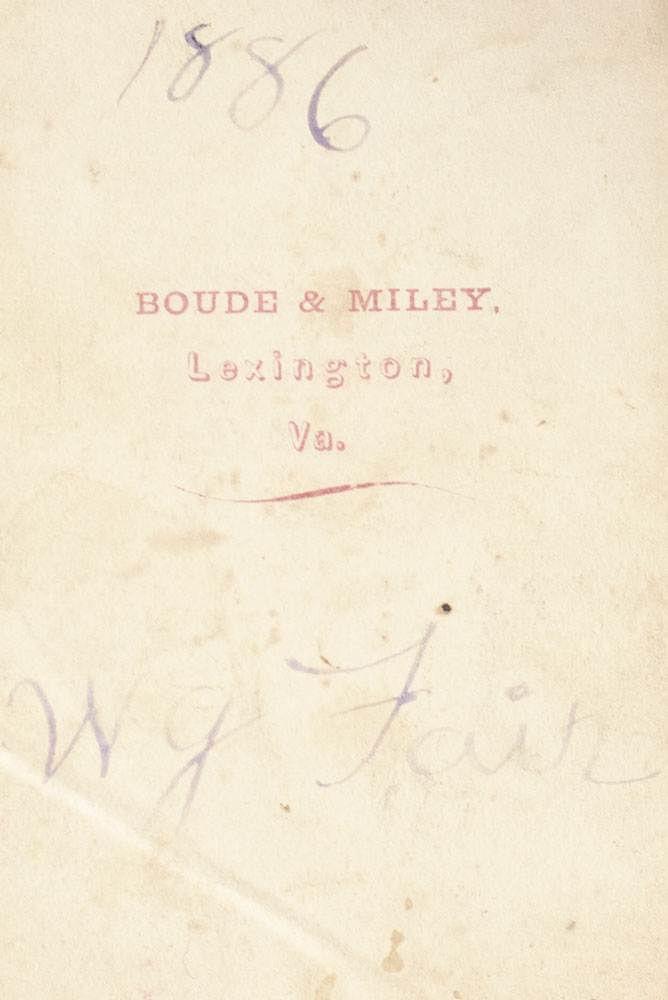 1886
BOUDE & MILEY,
Lexington,
Va.
W G Fair